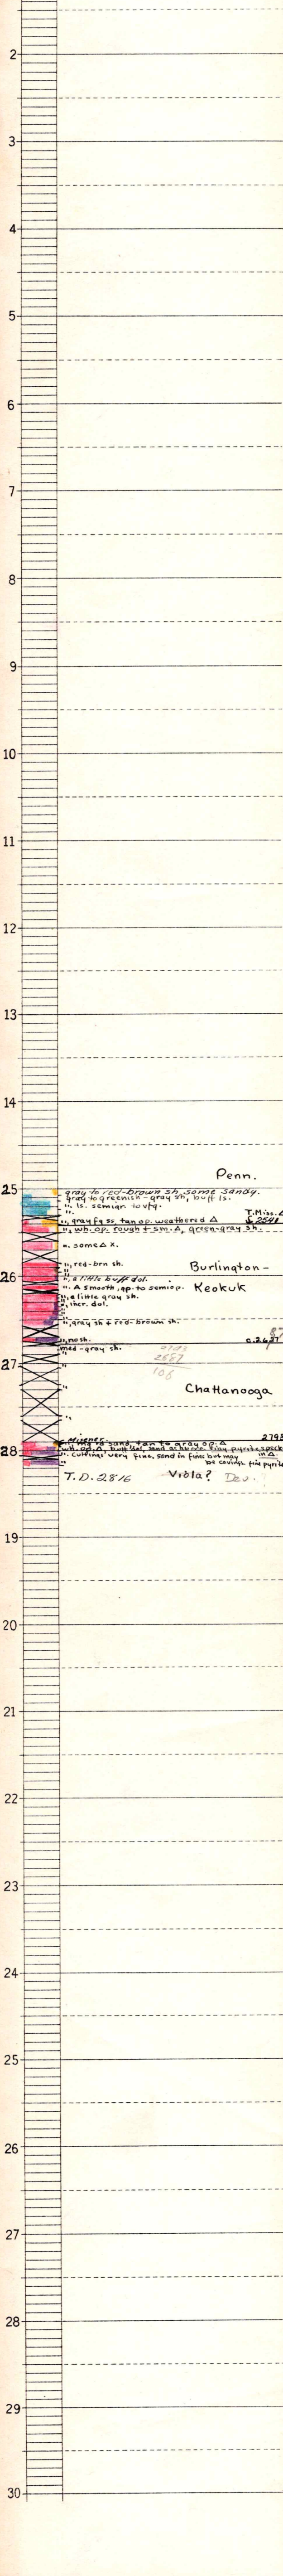 2
3
4
5
6
7
8
9
10
11
12
13
14
Penn.
25
gray to red-brown sh, some sandy.
gray to greenish-gray sh, buff ls.
", ls. semigr. to vfg.
".
T. Miss. Δ
", gray fg ss, tan op. weathered Δ
", wh. op. rough + sm. Δ, green-gray sh.
". some Δ x.
", red-brn sh.
Burlington-
26
", a little buff dol.
". Δ smooth, op. to semiop.
Keokuk
", a little gray sh.
", incr. dol.
", gray sh + red-brown sh.
", no sh.
c. 2687
med-gray sh.
2793
2687
106
27
"
"
Chattanooga
"
2793
28
". cuttings very fine, sand in fines but may
be cavings. fine pyrite
in Δ.
T.D. 2816
Viola?
Dev.
19
20
21
22
23
24
25
26
27
28
29
30